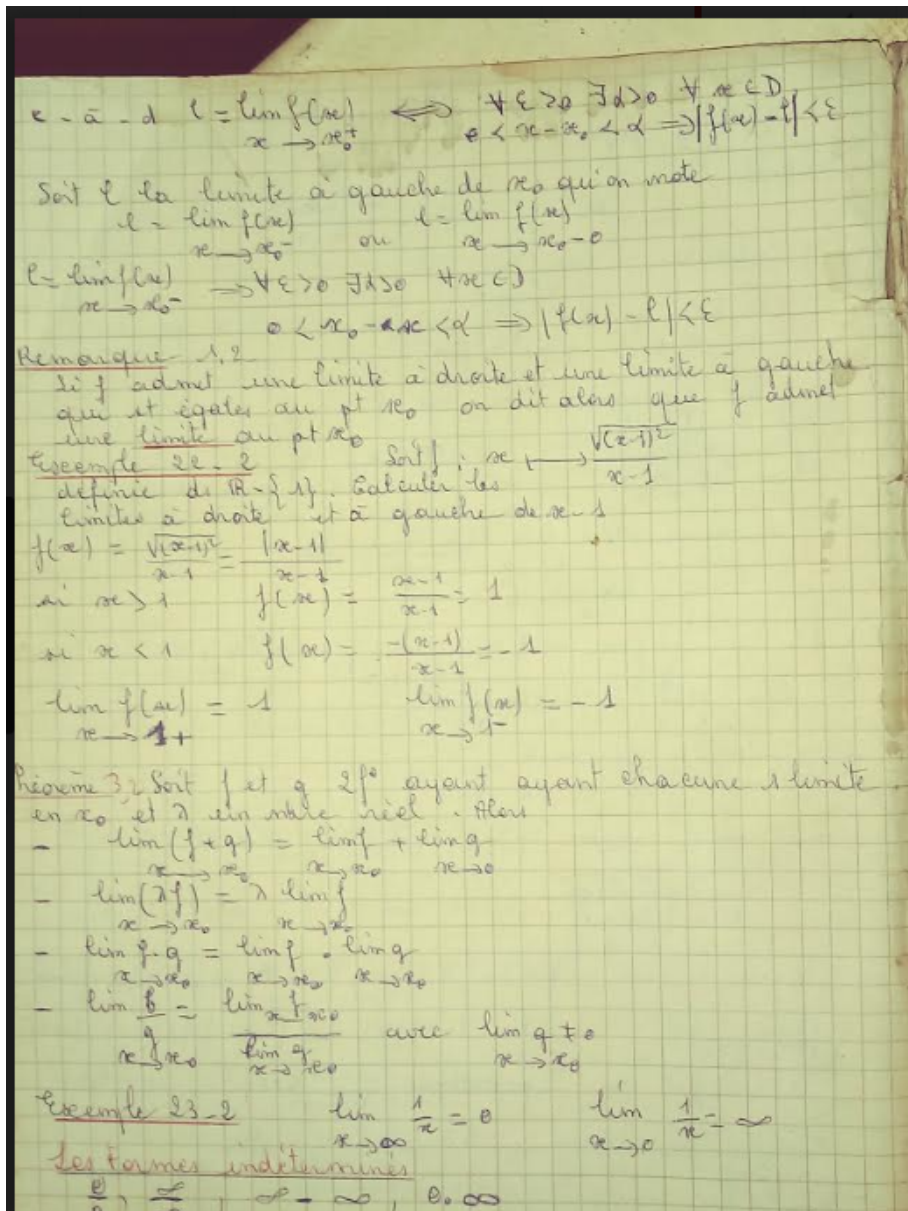 c - à - d l = lim f(x) ⟺ ∀ ε > 0 ∃ α > 0 ∀ x ∈ D
x → x₀⁺ 0 < x - x₀ < α ⟹ |f(x) - l| < ε
Soit l la limite à gauche de x₀ qu'on note
l = lim f(x) l = lim f(x)
x → x₀⁻ ou x → x₀ - 0
l = lim f(x) ⟹ ∀ ε > 0 ∃ α > 0 ∀ x ∈ D
x → x₀⁻
0 < x₀ - x < α ⟹ |f(x) - l| < ε
Remarque 1.2
Si f admet une limite à droite et une limite à gauche
qui st égales au pt x₀ on dit alors que f admet
une limite au pt x₀
Exemple 22-2 Soit f : x ⟼ √(x-1)² / x-1
définie ds ℝ - {1}. Calculer les
limites à droite et à gauche de x-1
f(x) = √(x-1)² / x-1 = |x-1| / x-1
si x > 1 f(x) = x-1 / x-1 = 1
si x < 1 f(x) = -(x-1) / x-1 = -1
lim f(x) = 1 lim f(x) = -1
x → 1+ x → 1⁻
héorème 3: Soit f et g 2 f° ayant ayant chacune 1 limite
en x₀ et λ un nbre réel. Alors
- lim (f + g) = lim f + lim g
x → x₀ x → x₀ x → 0
- lim (λf) = λ lim f
x → x₀ x → x₀
- lim f.g = lim f . lim g
x → x₀ x → x₀ x → x₀
- lim f/g = lim f x → x₀ / lim g x → x₀ avec lim g ≠ 0
x → x₀ x → x₀
Exemple 23-2 lim 1/x = 0 lim 1/x = ∞
x → ∞ x → 0
Les Formes indéterminés
0/0, ∞/∞, ∞ - ∞, 0.∞